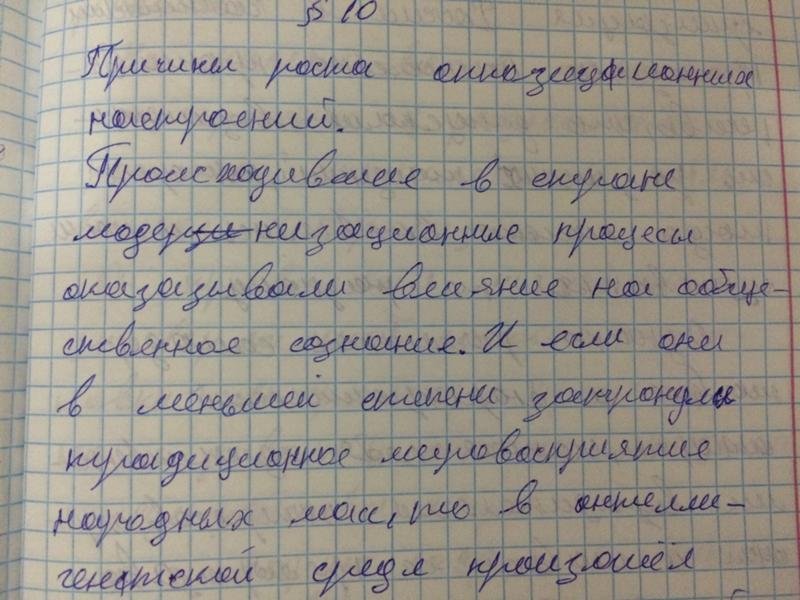 § 10
Причины роста оппозиционных
настроений.
Происходившие в стране
модерци низационные процесы
оказазывали влияние на обще-
ственное сознание. И если они
в меньшей степени затронули
традиционное мировосприятие
народных масс, то в интелли-
гентской среде произошёл